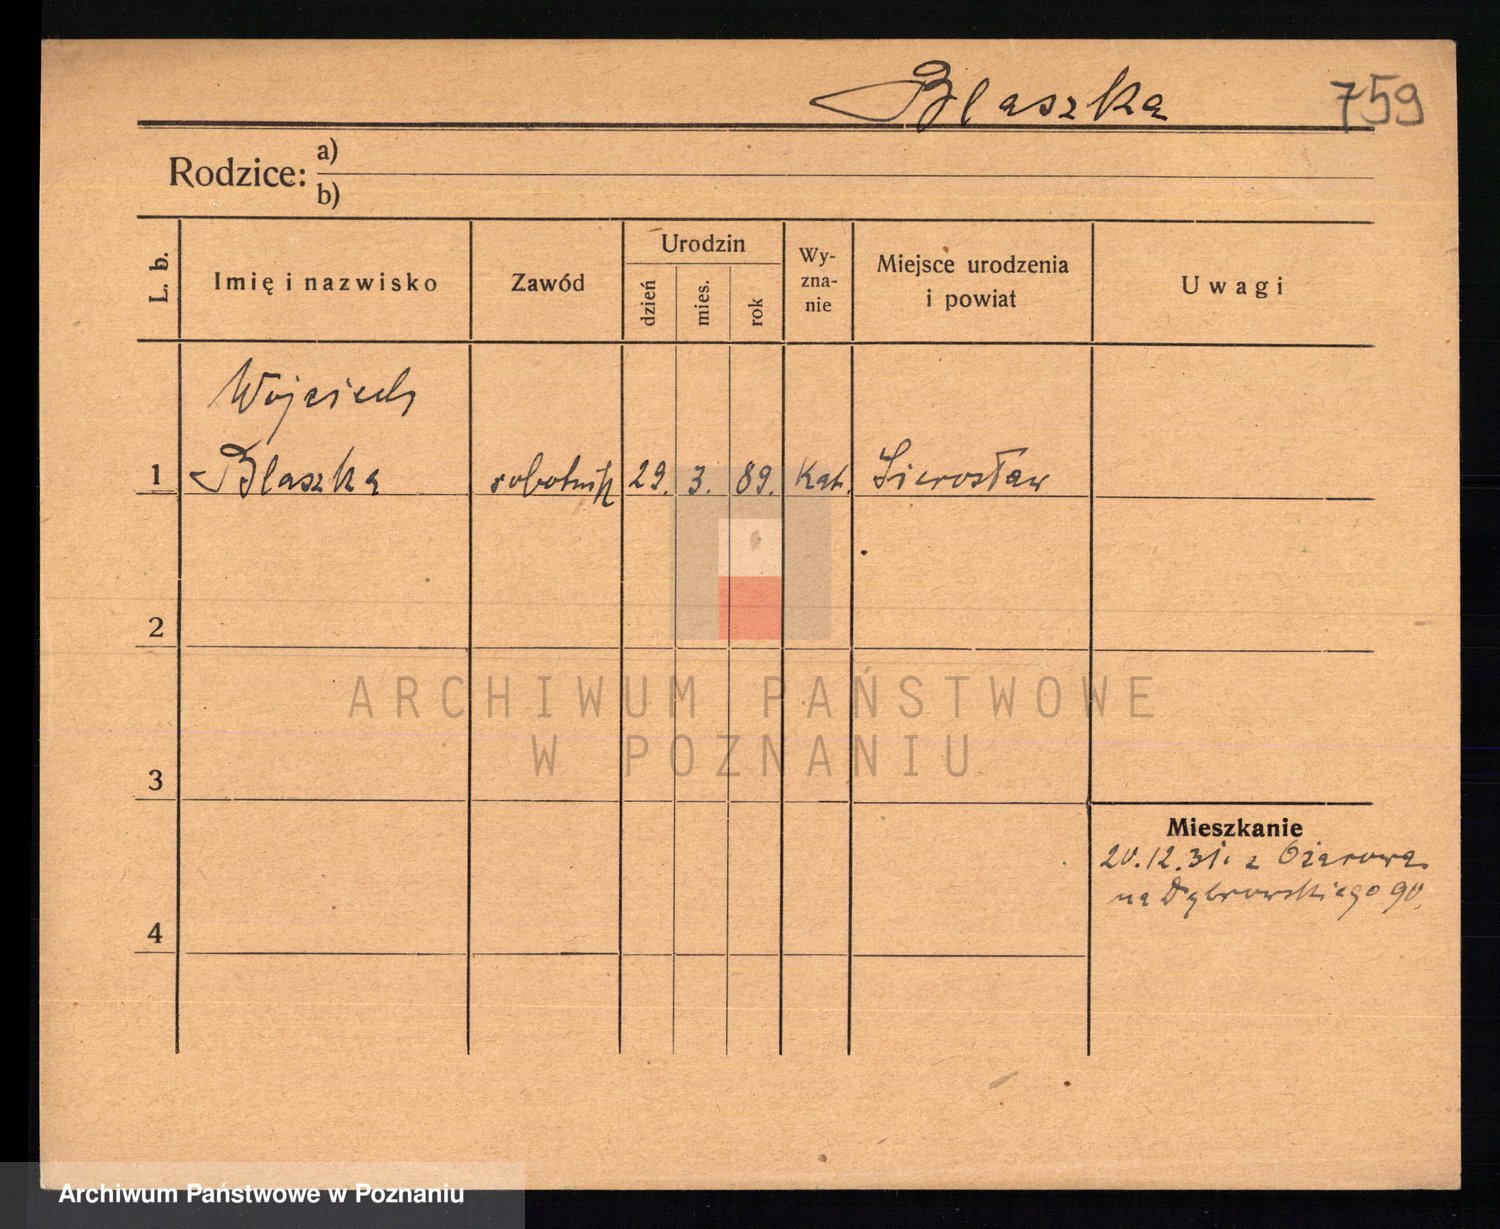 Blaszka 759
Rodzice: a)
b)
L. b. Imię i nazwisko Zawód Urodzin dzień mies. rok Wy-zna-nie Miejsce urodzenia i powiat Uwagi
Wojciech
1 Blaszka robotnik 29. 3. 89. Kat. Sierosław
2
ARCHIWUM PAŃSTWOWE
W POZNANIU
3
Mieszkanie
20.12.31. z Ożarowa
na Dąbrowskiego 90.
4
Archiwum Państwowe w Poznaniu